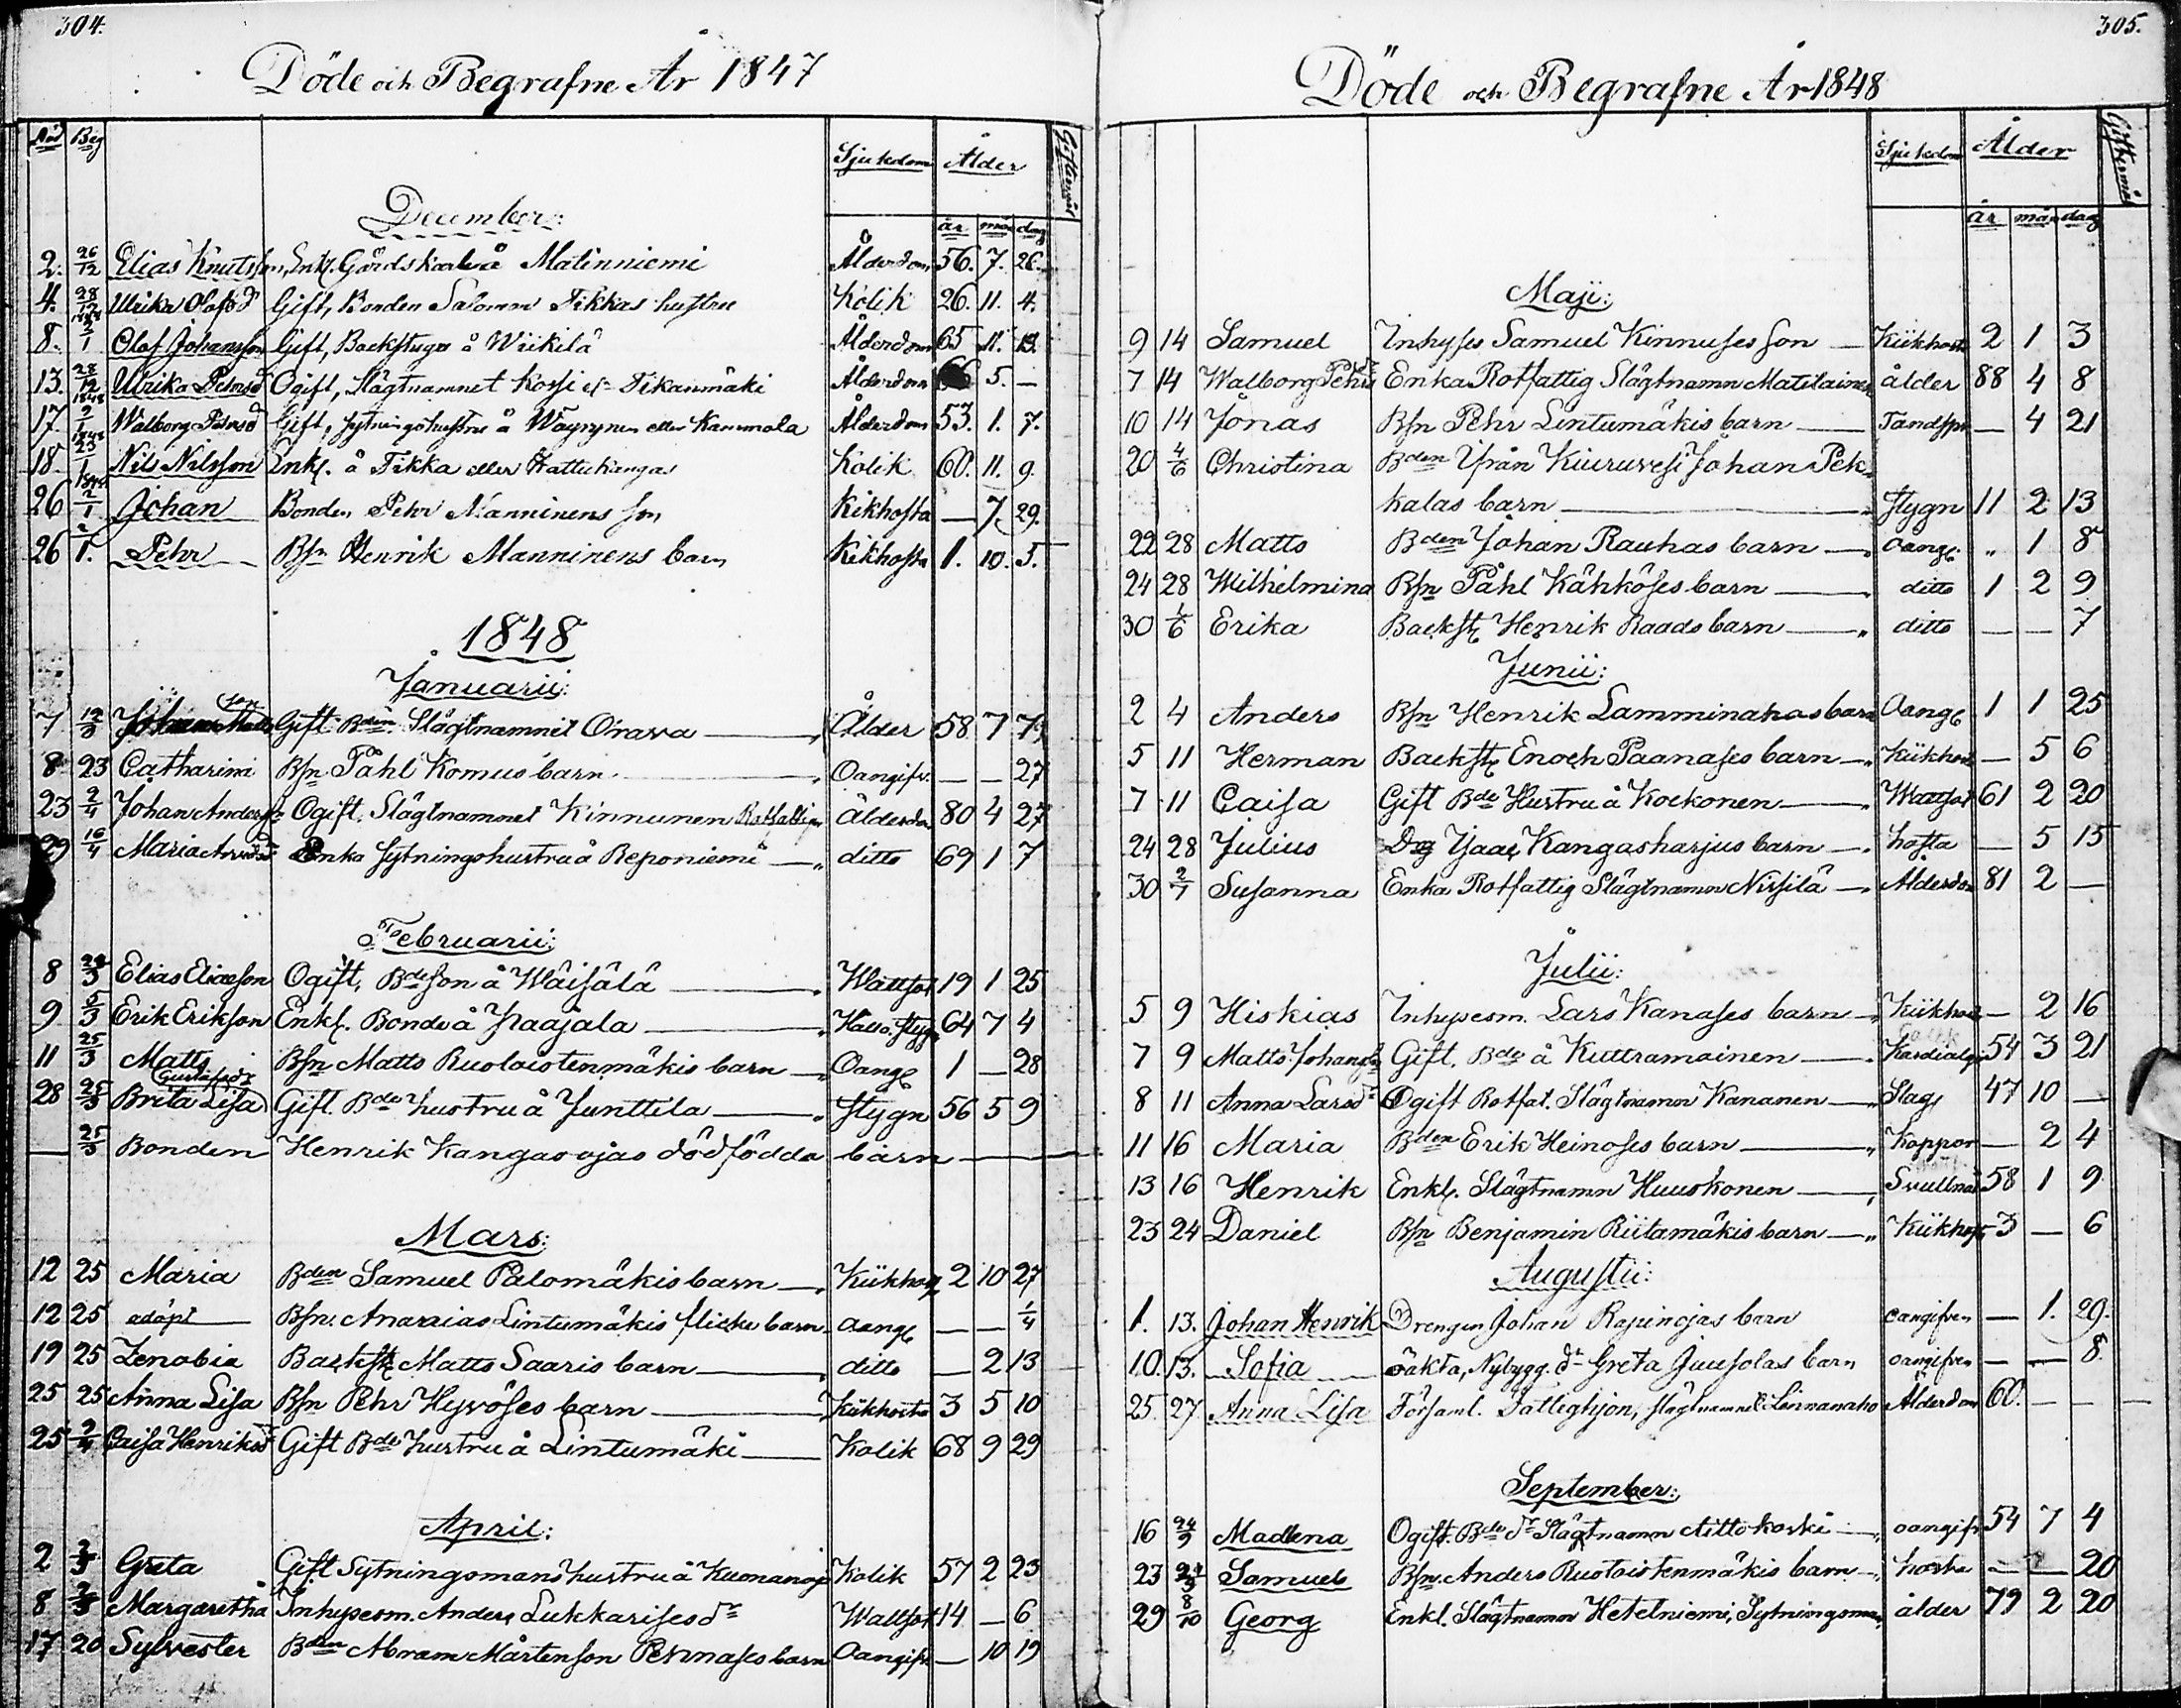 304.
Döde och Begrafne År 1847
Död Beg Sjukdom Ålder Giftermål
år mån dag
December:
2. 26/12 Elias Knutsson, Enkl. Gårdskarl å Matinniemi Ålderdom 56. 7. 26.
4. 28/12 Ulrika Olofsd Gift, Bonden Salomon Tikkas hustru Kolik 26. 11. 4.
8. 1848 2/1 Olof Johansson Gift, Backstuga å Wiikilä Ålderdom 65 11. 13.
13. 28/12 Ulrika Petersd Ogift, Slägtnamnet Kossi el. Tikanmäki Ålderdom 5. —
17. 1848 2/1 Walborg Petersd Gift, Sytningshustru å Wäyrynen eller Kammola Ålderdom 53. 1. 7.
18. 1848 23/1 Nils Nilsson Enkl. å Tikka eller Kattukangas Kolik 60. 11. 9.
26 1848 2/1 Johan Bonden Pehr Manninens son Kikhosta — 7. 29.
26 2/1. Pehr Bsn Henrik Manninens barn Kikhosta 1. 10. 5.
1848
Januarii:
7 12/3 Johan Matts son Gift Bden Slägtnamnet Orava — Ålder 58 7 7
8 23 Catharina Bsn Påhl Komus barn — Oangifv. — — 27
23 2/4 Johan Anderss. Ogift. Slägtnamnet Kinnunen Rotfattig Ålderdom 80 4 27
29 16/4 Maria Enka Sytningshustru å Reponiemi — ditto 69 1 7
Februarii:
8 Elias Eliasson Ogift, Bde son å Wäisälä — Wattsot 19 1 25
9 5/3 Erik Erikson Enkl. Bonde å — Håll o. stygn 64 7 4
11 25/3 Matts Bsn Matts Ruoloistenmäkis barn — Oang 1 — 28
28 25/3 Brita Lisa Gustafsdr Gift. Bde hustru å Junttila — stygn 56 5 9
— 25/3 Bonden Henrik Kangasojas dödfödda barn —
Mars:
12 25 Maria Bden Samuel Palomäkis barn — Kiikhost 2 10 27
12 25 odöpt Bsn. Ananias Lintumäkis flicke barn — oang — — 1/4
19 25 Zenobia Backst Matts Saaris barn — ditto — 2 13
25 25 Anna Lisa Bsn Pehr Hyvöses barn — Kiikhosta 3 5 10
25 2/4 Caisa Henriksdr Gift Bde hustru å Lintumäki — Kolik 68 9 29
April:
2 Greta Gift Sytningsmans hustru å Kuonanoj Kolik 57 2 23
8 Margaretha Inhysesm. Anders Lukkarises dr Wattsot 14 — 6
17 20 Sylvester Bden Abram Mårtenson Pennases barn Oangifv. — 10 19
305.
Döde och Begrafne År 1848
Sjukdom Ålder Giftermål
år mån dag
Maji:
9 14 Samuel Inhyses Samuel Kinnuses son — Kiikhosta 2 1 3
7 14 Walborg Pehrsdr Enka Rotfattig Slägtnamn Matilainen ålder 88 4 8
10 14 Jonas Bsn Pehr Lintumäkis barn — Tandspr — 4 21
20 4/6 Christina Bden ifrån Kiuruvesi Johan Pek-
kalas barn — stygn 11 2 13
22 28 Matts Bden Johan Rauhas barn — oang. „ 1 8
24 28 Wilhelmina Bsn Påhl Kähköses barn — ditto 1 2 9
30 1/6 Erika Backst Henrik Raads barn — ditto — — 7
Junii:
2 4 Anders Bsn Henrik Lamminahos barn Oang 1 1 25
5 11 Herman Backst Enoch Paanases barn — Kiikhost — 5 6
7 11 Caisa Gift Bde Hustru å Kockonen — Wattsot 61 2 20
24 28 Julius Drg Isaac Kangasharjus barn — hosta — 5 15
30 2/7 Susanna Enka Rotfattig Slägtnamn Nissilä — Ålderdom 81 2 —
Julii:
5 9 Hiskias Inhysesm. Lars Kanases barn — Kiikhost — 2 16
7 9 Matts Johanss. Gift. Bde å Kuttramainen — Kardialg 54 3 21
8 11 Anna Larsdr Ogift Rotfat. Slägtnamn Kananen — Slag 47 10 —
11 16 Maria Bden Erik Heinoses barn — koppor — 2 4
13 16 Henrik Enkl. Slägtnamn Huuskonen — Svullnad 58 1 9
23 24 Daniel Bsn Benjamin Riitamäkis barn — Kiikhost 3 — 6
Augustii:
1. 13. Johan Henrik Drengen Johan Rapinojas barn oangifven — 1. 29.
10. 13. Sofia oäkta, Nybygg. dr Greta Juusolas barn oangifven — — 8.
25. 27 Anna Lisa Församl. Fattighjon, slägtnamnet Linnanaho Ålderdom 60. — —
September:
16 24/9 Madlena Ogift. Bde dr Slägtnamn Aittokoski — oangifv 54 7 4
23 24/9 Samuel Bsn. Anders Ruotoistenmäkis barn — hosta — — 20
29 8/10 Georg Enkl. Slägtnamn Hetelniemi, Sytningsman, ålder 79 2 20